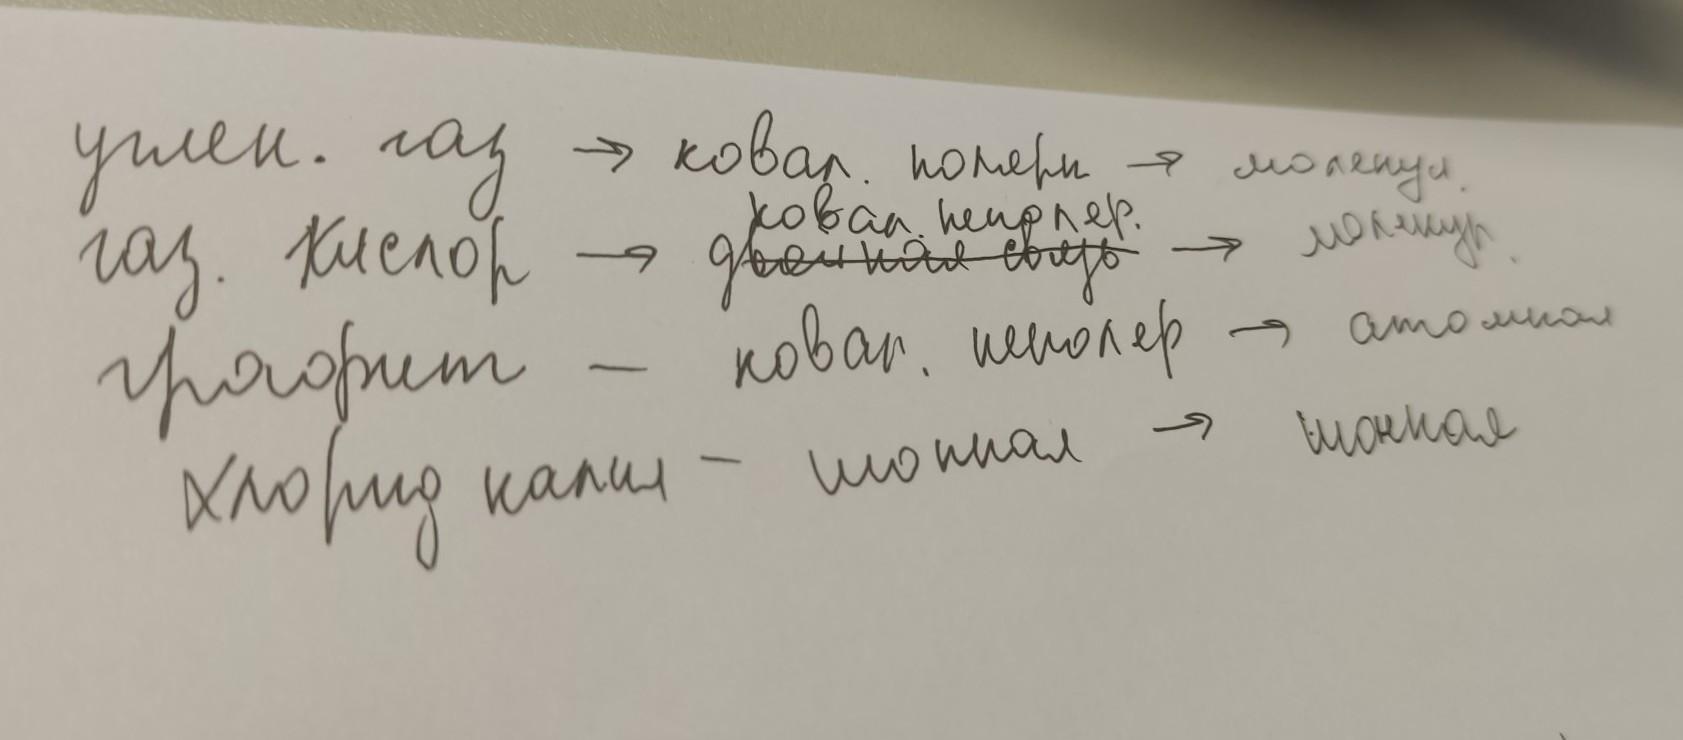 углек. газ → ковал. полярн → молекул.
ковал. неполяр.
газ. кислор → двойная связь → молекул.
графит – ковал. неполяр → атомная
хлорид калия – ионная → ионная